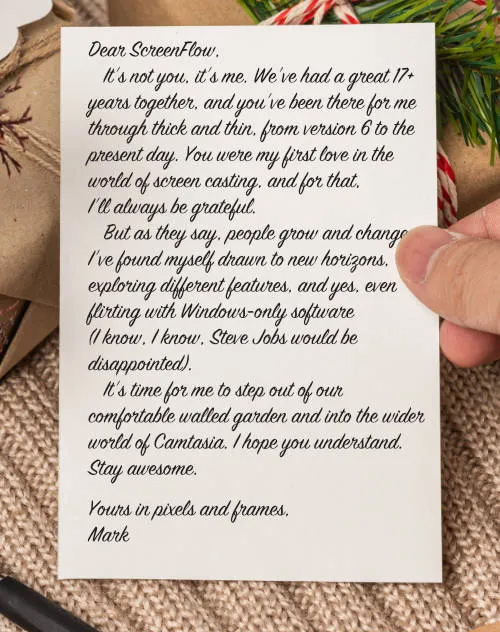 Dear ScreenFlow,
It's not you, it's me. We've had a great 17+
years together, and you've been there for me
through thick and thin, from version 6 to the
present day. You were my first love in the
world of screen casting, and for that,
I'll always be grateful.
But as they say, people grow and change.
I've found myself drawn to new horizons,
exploring different features, and yes, even
flirting with Windows-only software
(I know, I know, Steve Jobs would be
disappointed).
It's time for me to step out of our
comfortable walled garden and into the wider
world of Camtasia. I hope you understand.
Stay awesome.
Yours in pixels and frames,
Mark